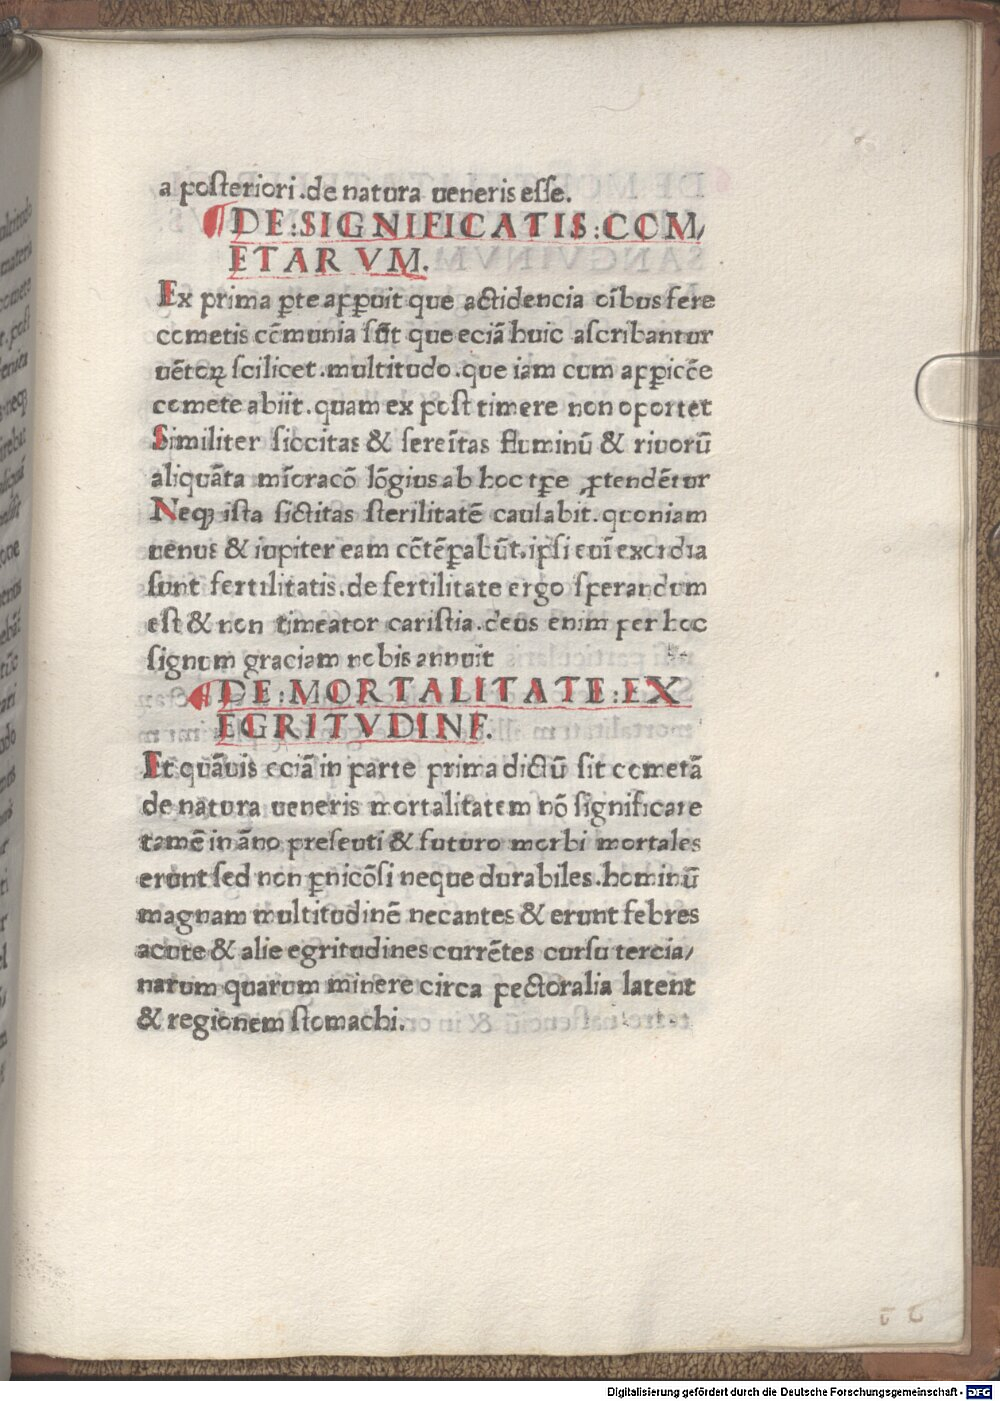 a posteriori.de natura ueneris esse.
¶DE:SIGNIFICATIS:COM/
ETARVM.
Ex prima ꝑte apꝑuit que actidencia oı̄bus fere
cometis cōmunia sūt que eciā huic ascribantur
uētoꝝ scilicet.multitudo.que iam cum apꝑicōe
comete abiit.quam ex post timere non oportet
Similiter siccitas & sereı̄tas fluminū & riuorū
aliquāta mı̄oracō lōgius ab hoc tꝑe ꝓtendētur
Neqꝫ ista sictitas sterilitatē causabit.quoniam
uenus & iupiter eam cōtēꝑabūt.ipsi eııı̄ exordia
sunt fertilitatis.de fertilitate ergo sperandum
est & non timeator caristia.deus enim per hoc
signum graciam nobis annuit
¶DE:MORTALITATE:EX
EGRITVDINE.
Et quāuis eciā in parte prima dictū sit cometā
de natura ueneris mortalitatem nō significare
tamē in āno presenti & futuro morbi mortales
erunt sed non ꝑnicōsi neque durabiles.hominū
magnam multitudinē necantes & erunt febres
acute & alie egritudines currētes cursu tercia/
narum quarum minere circa pectoralia latent
& regionem stomachi.
Digitalisierung gefördert durch die Deutsche Forschungsgemeinschaft - DFG